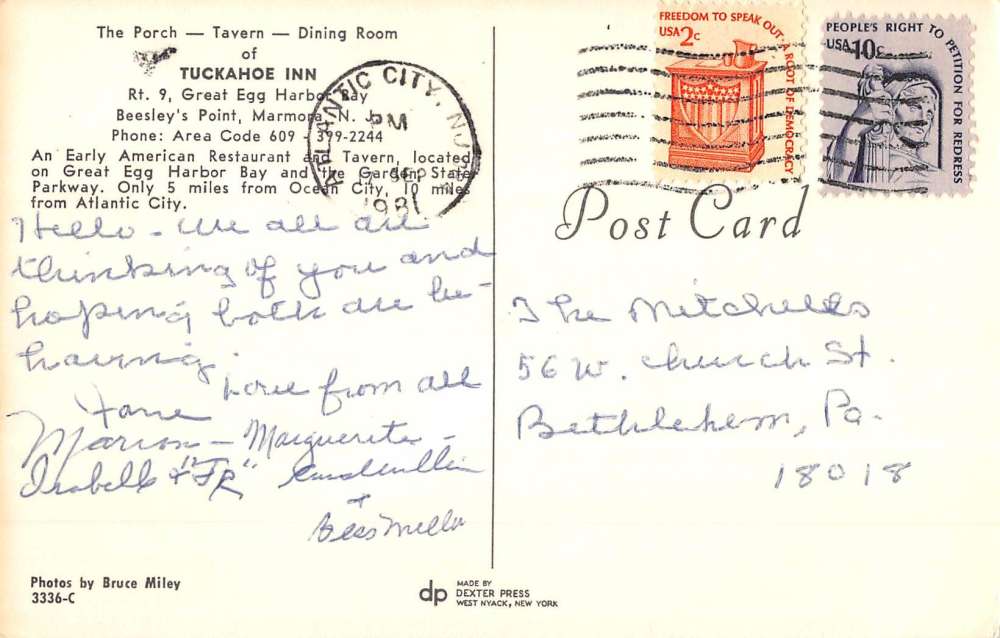 The Porch — Tavern — Dining Room
of
TUCKAHOE INN
Rt. 9, Great Egg Harbor Bay
Beesley's Point, Marmora, N. J.
Phone: Area Code 609 - 399-2244
An Early American Restaurant and Tavern, located
on Great Egg Harbor Bay and the Garden State
Parkway. Only 5 miles from Ocean City, 10 miles
from Atlantic City.
ATLANTIC CITY, NJ
PM
SEP
1981
Hello - We all are
thinking of you and
hoping both are be-
having.
Love from all
Marion - Marguerite -
Isabelle + "JR"
+
Bess
FREEDOM TO SPEAK OUT · A ROOT OF DEMOCRACY
USA 2c
PEOPLE'S RIGHT TO PETITION FOR REDRESS
USA 10c
Post Card
The Mitchells
56 W. Church St.
Bethlehem, Pa.
18018
Photos by Bruce Miley
3336-C
dp
MADE BY
DEXTER PRESS
WEST NYACK, NEW YORK